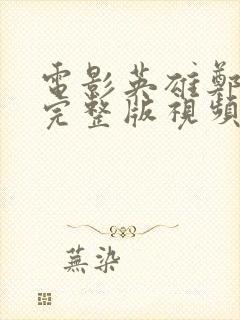 電影英雄鄭
完整版視頻
蕪染